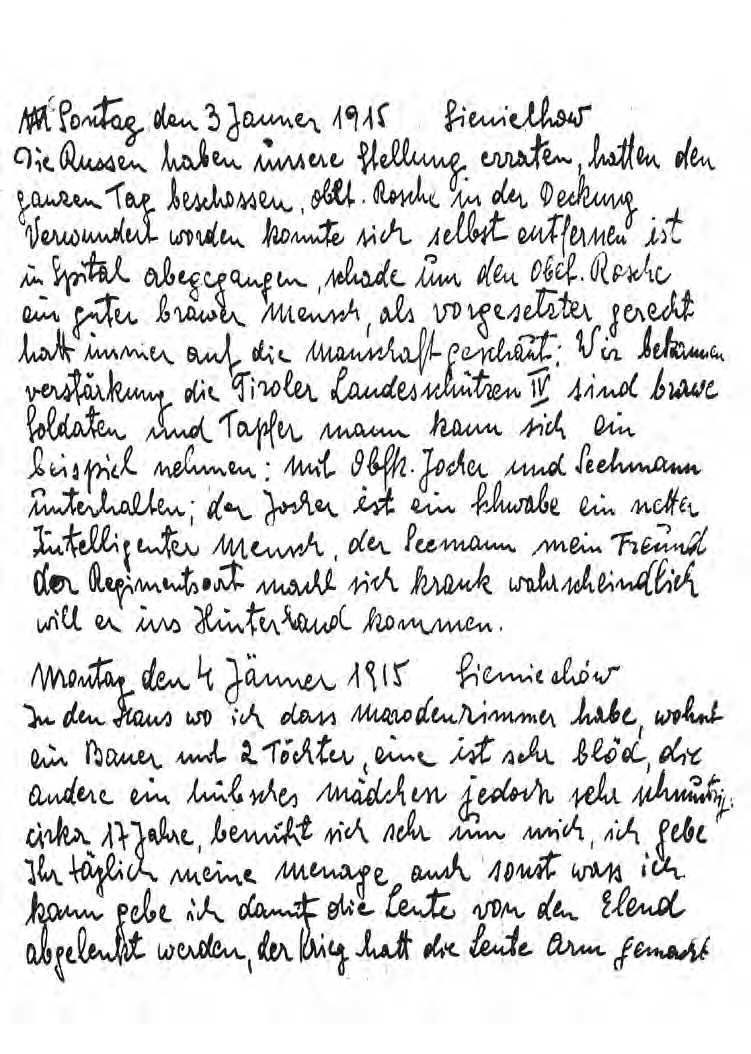 Sontag den 3 Jänner 1915 Siemiechow
Die Russen haben únsere Stellung erraten, hatten den
ganzen Tag beschossen, oblt. Rosche in der Deckung
Verwundert worden konnte sich selbst entfernen ist
in Spital abegegangen, schade úm den Oblt. Rosche
ein guter brawer Mensch, als vorgesetzter gerecht
hatt immer auf die Manschaft geschaut: Wir bekammen
verstärkung die Tiroler Landesschützen IV sind brawe
Soldaten und Tapfer mann kann sich ein
beispiel nehmen: mit Obfk. Jocher und Seehmann
únterhalten; der Jocher ist ein Schwabe ein netter
Intelligenter Mensch, der Seemann mein Freund
der Regimentsart macht sich krank wahrscheindlich
will er ins Hinterland kommen.
Montag den 4 Jänner 1915 Siemiechów
In den Haus wo ich dass Marodenzimmer habe, wohnt
ein Bauer mit 2 Töchter, eine ist sehr blöd, die
andere ein hübsches mädchen jedoch sehr schmutzig:
cirka 17 Jahre, bemüht sich sehr úm mich, ich gebe
Ihr täglich meine Menage, auch sonst wass ich
kann gebe ich damit die Leute von den Elend
abgelenkt werden, der Krieg hatt die Leute Arm gemacht